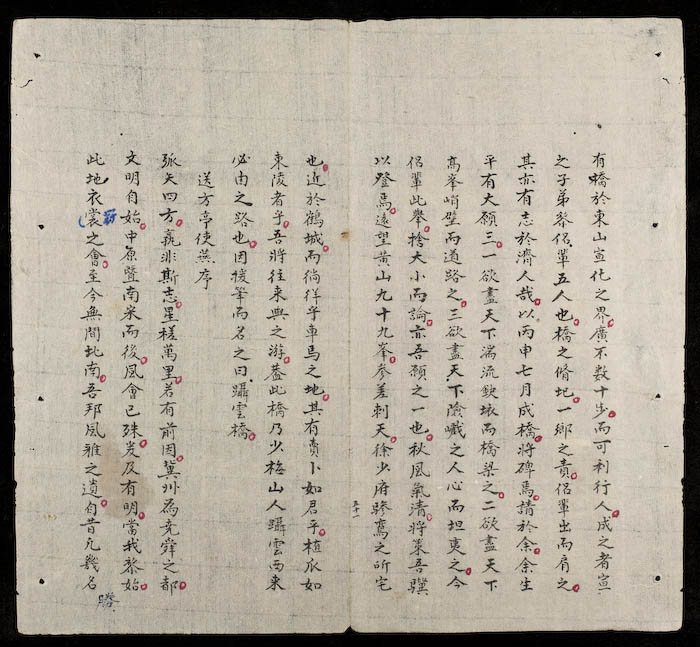 有橋於東山宣化之界廣不数十步而可利行人成之者宣
之子弟黎侶輩五人也橋之脩圯一鄉之責侶輩出而肩之
其亦有志於濟人哉以丙申七月成橋將碑焉請於余余生
平有大願三一欲盡天下湍流鈌埭而橋梁之二欲盡天下
高峯峭壁而道路之三欲盡天下險巇之人心而坦夷之今
侶輩此舉捨大小而論亦吾願之一也秋風氣清將策吾驥
以登焉遠望黄山九十九峯參差刺天徐少府驂鸞之所宅
五十一
也近於鶴城而徜徉乎車馬之地其有賣卜如君平植瓜如
東陵者乎吾將往来與之游蓋此橋乃少梅山人躡雲西来
必由之路也因援筆而名之曰躡雲橋
送方亭使燕序
弧矢四方孰非斯志星槎萬里若有前因冀州為尭舜之都
文明自始中原曁南米而後風會已殊爰及有明當我黎始
此地衣裳之會至今無間北南吾邦風雅之遺自昔凡幾名
勝